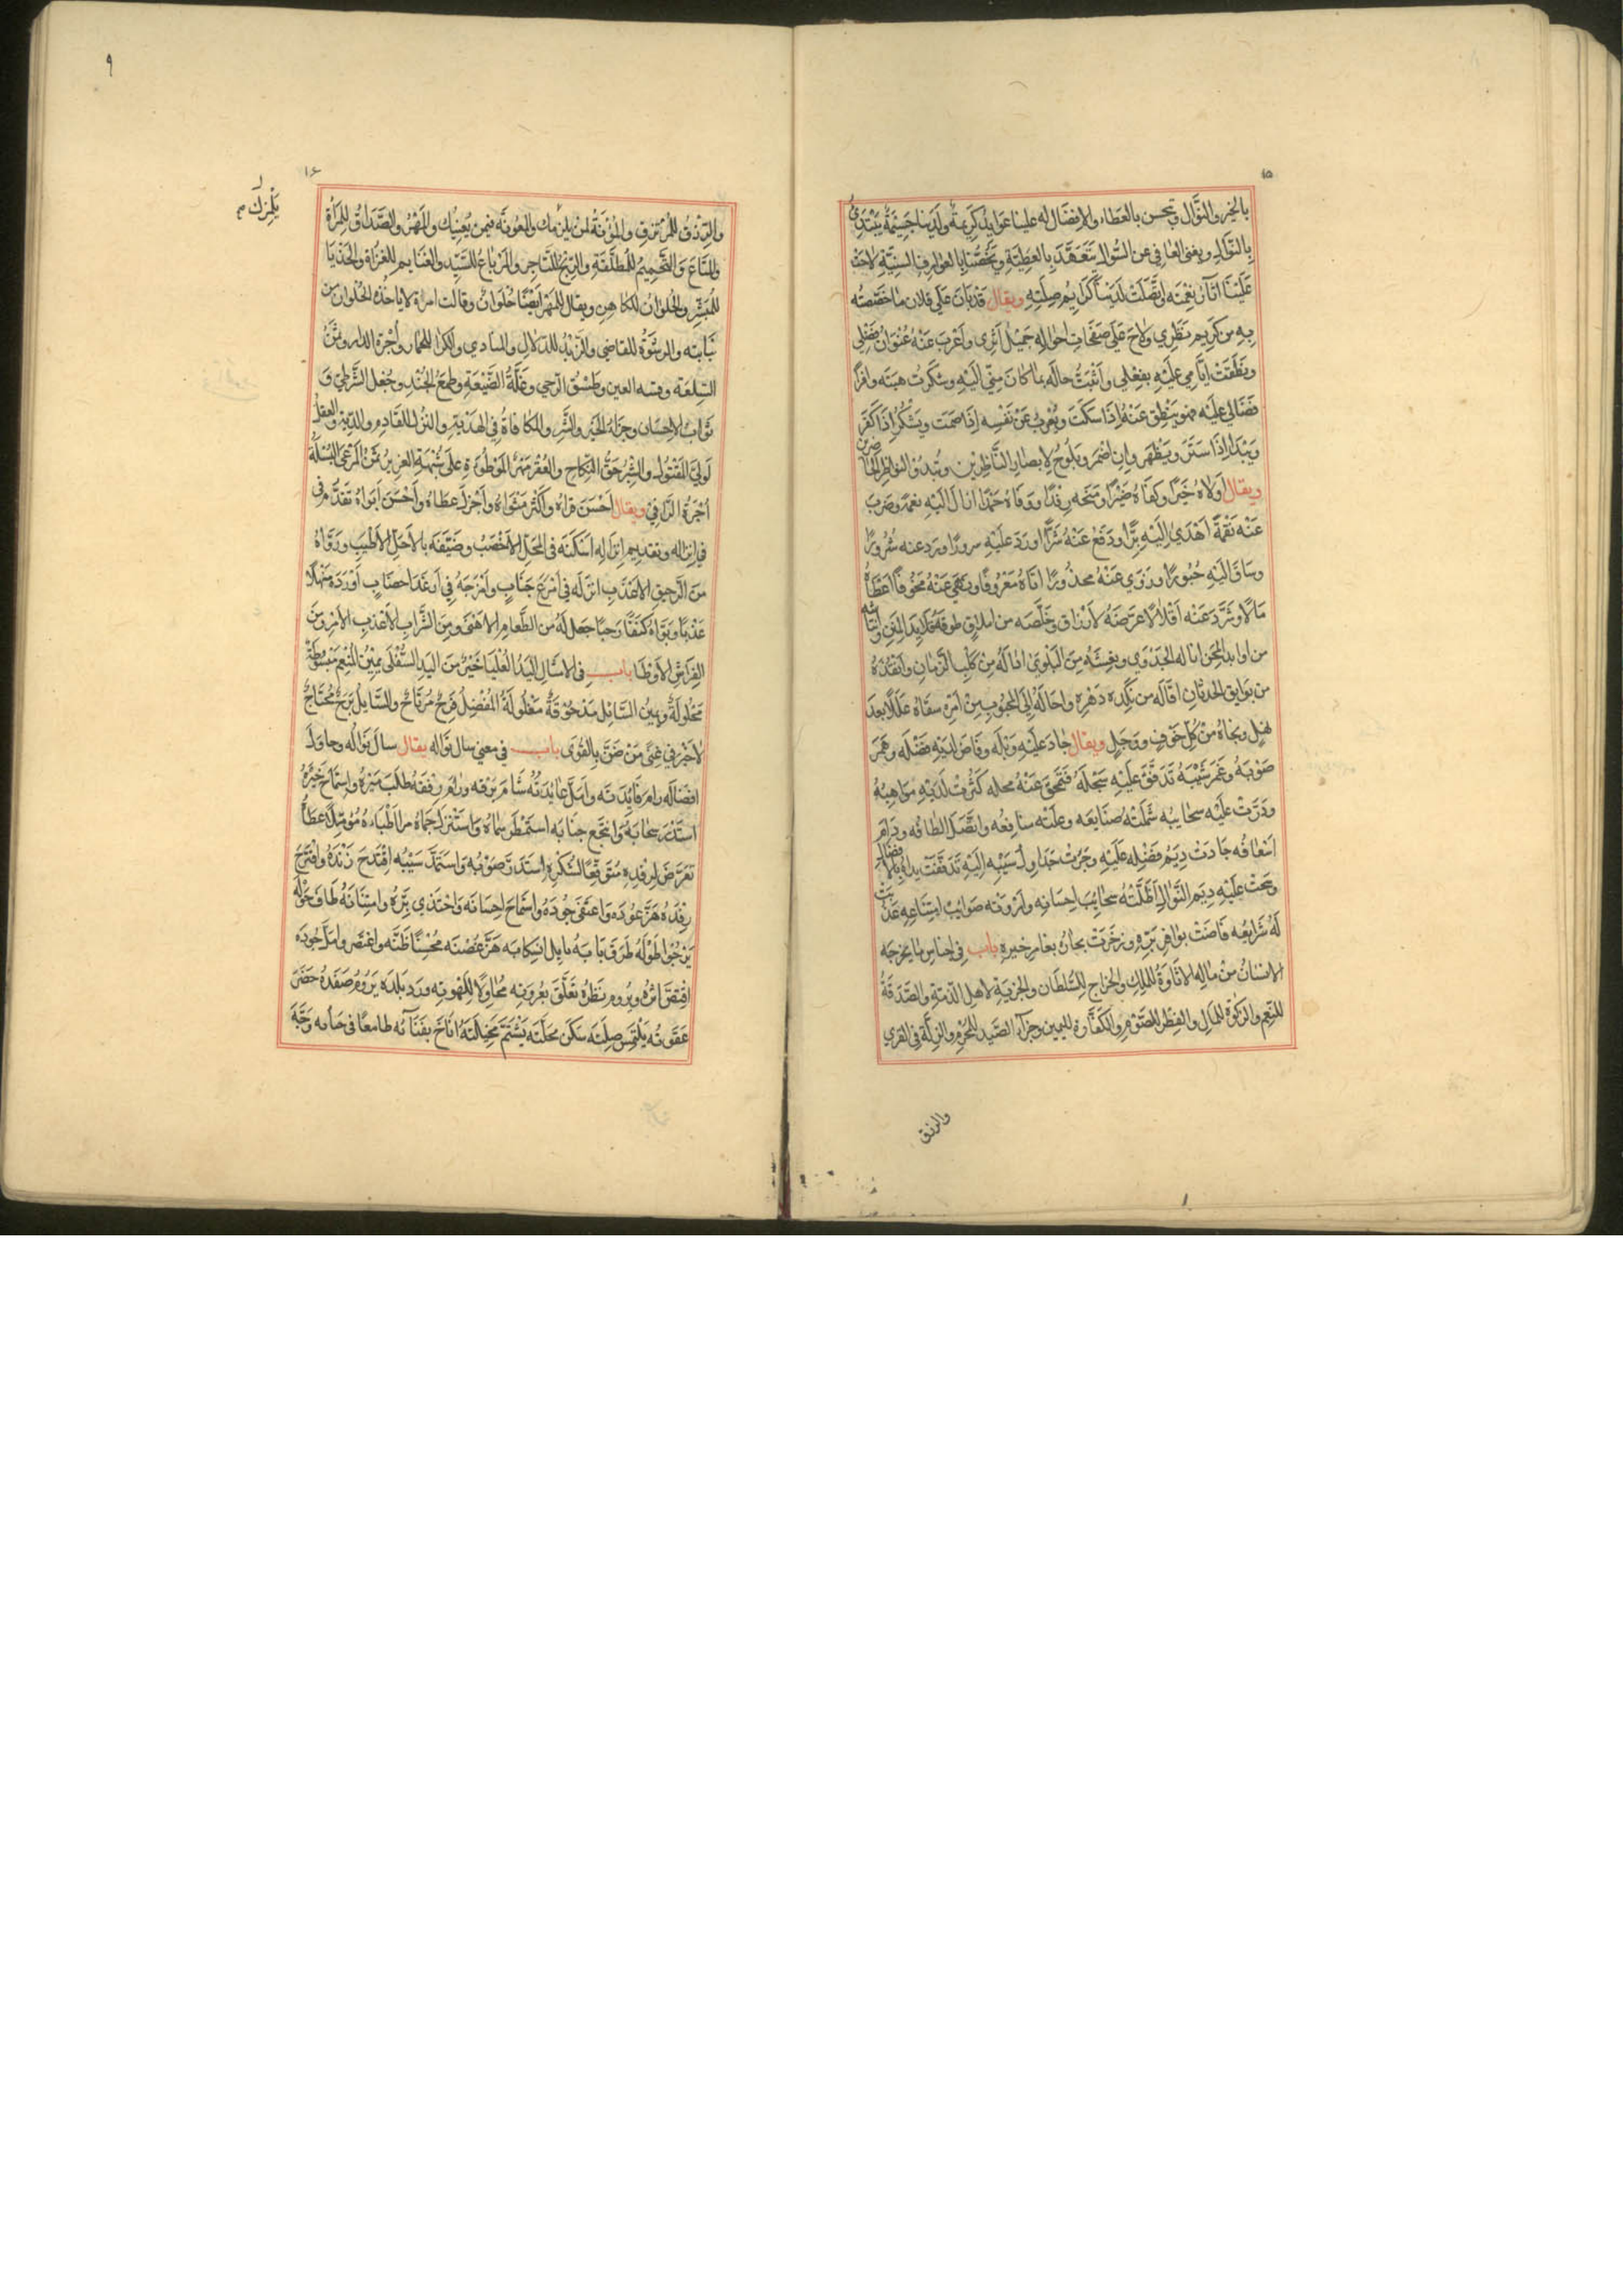 ١٥
بالخير والنوال ويحسن بالعطاء والافضال له علينا عوايد كريمة ولدينا جسيمة يبتدئ
بالنوال ويغنى العافى عن السوال يتعهد بالعطية ويخصنا بالعوارف السنية لاحت
علينا اثار نعمته واتصلت لدينا كرايم صلته ويقال قد بان على فلان ما خصصته
به من كريم نظرى ولاح على صفحات احواله جميل اثرى واعرب عنه عنوان فضلى
ونطقت ايامى عليه بفعلى واثبت حاله بما كان منى اليه وشكرت هبته وافرا
فضالى عليه فهو ينطق عنه اذا سكت ويعرب عن نفسه اذا صمت ويشكر اذا كفر
ويبدا اذا ستر ويظهر وان اضمر ويلوح لابصار الناظرين وتبدو النواظر الحاضرين
ويقال اولاه خيرا وكفاه ضيرا ومنحه رفدا ووقاه حمدا انال اليه نعمة وضرب
عنه نقمة اهدى اليه برا ودفع عنه شرا اورد عليه سرورا ورد عنه شرورا
وساق اليه حبورا وزوى عنه محذورا اتاه معروفا ونفى عنه مخوفا اعطاه
مالا وشرد عنه اقلالا عرضه لارزاق وخلصه من املاق طوقه قلايد المنن وانتاشه
من اوابد المحن اناله الجدوى ويغشه من البلوى اقاله من كلب الزمان وانقذه
من بوايق الحدثان اقاله من نكده دهره واحاله الى المحبوب من امره سقاه عللا بعد
نهل ونجاه من كل خوف ووجل ويقال جاد عليه وبله وفاض لديه فضله وغمر
صوبه وغمر سيبه تدفق عليه سجله فتحى عنه محله كثرت لديه مواهبه
ودرت عليه سحايبه شملته صنايعه وعلته منافعه واتصل الطافه ودام
اسعافه جادت ديم فضله عليه وجرت جداول سيبه اليه تدفقت يداه بالافضال
وسحت عليه ديم النوال اظلته سحايب احسانه واروته صوايب امتناعه عذبت
له شرايعه فاضت بوافر بره وزخرت بحار بغامر خيره باب فى اجناس ما يخرجه
الانسان من ماله الاتاوة للملك والخراج للسلطان والجزية لاهل الذمة والصدقة
للنعم والزكوة للمال والفطر للصوم والكفارة لليمين وجزاء الصيد للمحرم والنزلة فى القرى
والرزق
٩
١٦
يلزمك
والرزق للمرتزق والمؤنة لمن يلزمك والمعونة فيمن يعنيك والمهر والصداق للمراة
والمتاع والتحميم للمطلقة والربح للتاجر والمرباع للسيد والغنايم للغزاة والحذيا
للمبشر والحلوان للكاهن ويقال للمهر ايضا حلوان وقالت امراة لا ياخذه الحلوان من
بناتيه والرشوة للقاضى والزبد للدلال والمنادى والكرا للحمار واجرة الدار وثمن
السلعة وقيمة العين وطسق الرحى وغلة الضيعة وطمع الجند وجعل الشرطى و
ثواب الاحسان وجزاء الخير والشر والمكافاة فى الهدية والنزل للقادم والدية والعقل
لولى المقتول والشبر حق النكاح والعقر مهر الموطوءة على شبهة العزيز ثمن المرعى البسلة
اجرة الراقى ويقال احسن قراه واكثر مثواه واجزل عطاه واحسن ابواه تقدم فى
فى انزاله وتقديم انزاله اسكنه فى المحل الاخصب وضيفه بالاحل الاطيب ورواه
من الرحيق الاعذب انزله فى امرع جناب وامرجه فى ارغد احصاب اورده منهلا
عذبا وبواه كنفا رحبا جعل له من الطعام الاهنى ومن الشراب الاعذب الامرى ومن
الفراش الاوطا باب فى الامثال اليد العليا خير من اليد السفلى يمين المنعم مبسوطة
محلولة ويمين السائل مدحوقة مغلولة المفضل فرح مرتاح والسايل برح محتاج
لاخير فى غنى من ضن بالقوى باب فى معنى سال نواله يقال سال نواله وحاول
افضاله رام فايدته وامل عايدته شام برقه ورام رفقه طلب ميره واستماح خيره
استدر سحابه وانتجع جنابه استمطر سماه واستنزل حماه مرا اطباءه مؤملا عطاه
تعرض لرفده متوقعا لشكره استدر صوبه واستمد سيبه اقتدح زنده واقترح
رفده هز عوده واعتفى جوده واستماح احسانه واختذى بره وامتنانه طاف حوله
يرجوا طوله طرق بابه يامل انسكابه هز غصنه محسنا ظنه واغتصر وامل جوده
اقتص اثره ويروم نظره تعلق بعروته محاولا للهوته ورد بلده يروم صفده حضر
عقوته يلتمس صلته سكن محلته يشتم مخيلته اناخ بفنائه طامعا فى حبايه وجه